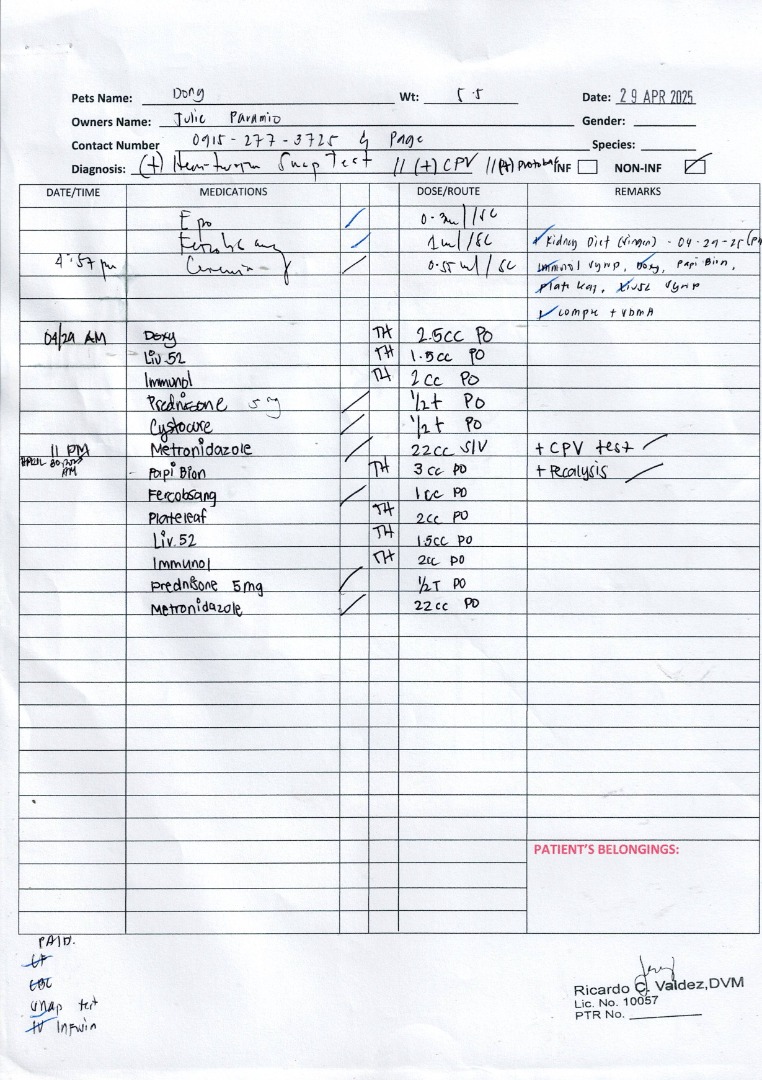 Pets Name: Dong Wt: 5.5 Date: 29 APR 2025
Owners Name: Julie Paramio Gender:
Contact Number 0915-277-3725 Page Species:
Diagnosis: (+) Heartworm Snap Test // (+) CPV // (+) Protobac INF NON-INF
DATE/TIME MEDICATIONS DOSE/ROUTE REMARKS
Epo 0.3ml/SC
1ml/SC Kidney Diet (Virgin) - 04-29-25
4:57 pm Cerenia 0.55ml/SC Immunol syrup, Doxy, Papi Bion,
syrup
04/29 AM Doxy TH 2.5cc PO
Liv.52 TH 1.5cc PO
Immunol TH 2cc PO
Prednisone 5mg 1/2t PO
Cystocure 1/2t PO
11 PM Metronidazole 22cc SIV + CPV test
Papi Bion TH 3cc PO + Fecalysis
Fercobsang 1cc PO
Plateleaf TH 2cc PO
Liv.52 TH 1.5cc PO
Immunol TH 2cc PO
Prednisone 5mg 1/2T PO
Metronidazole 22cc PO
PATIENT'S BELONGINGS:
PAID.
CBC
snap test
IV
Ricardo C. Valdez, DVM
Lic. No. 10057
PTR No.